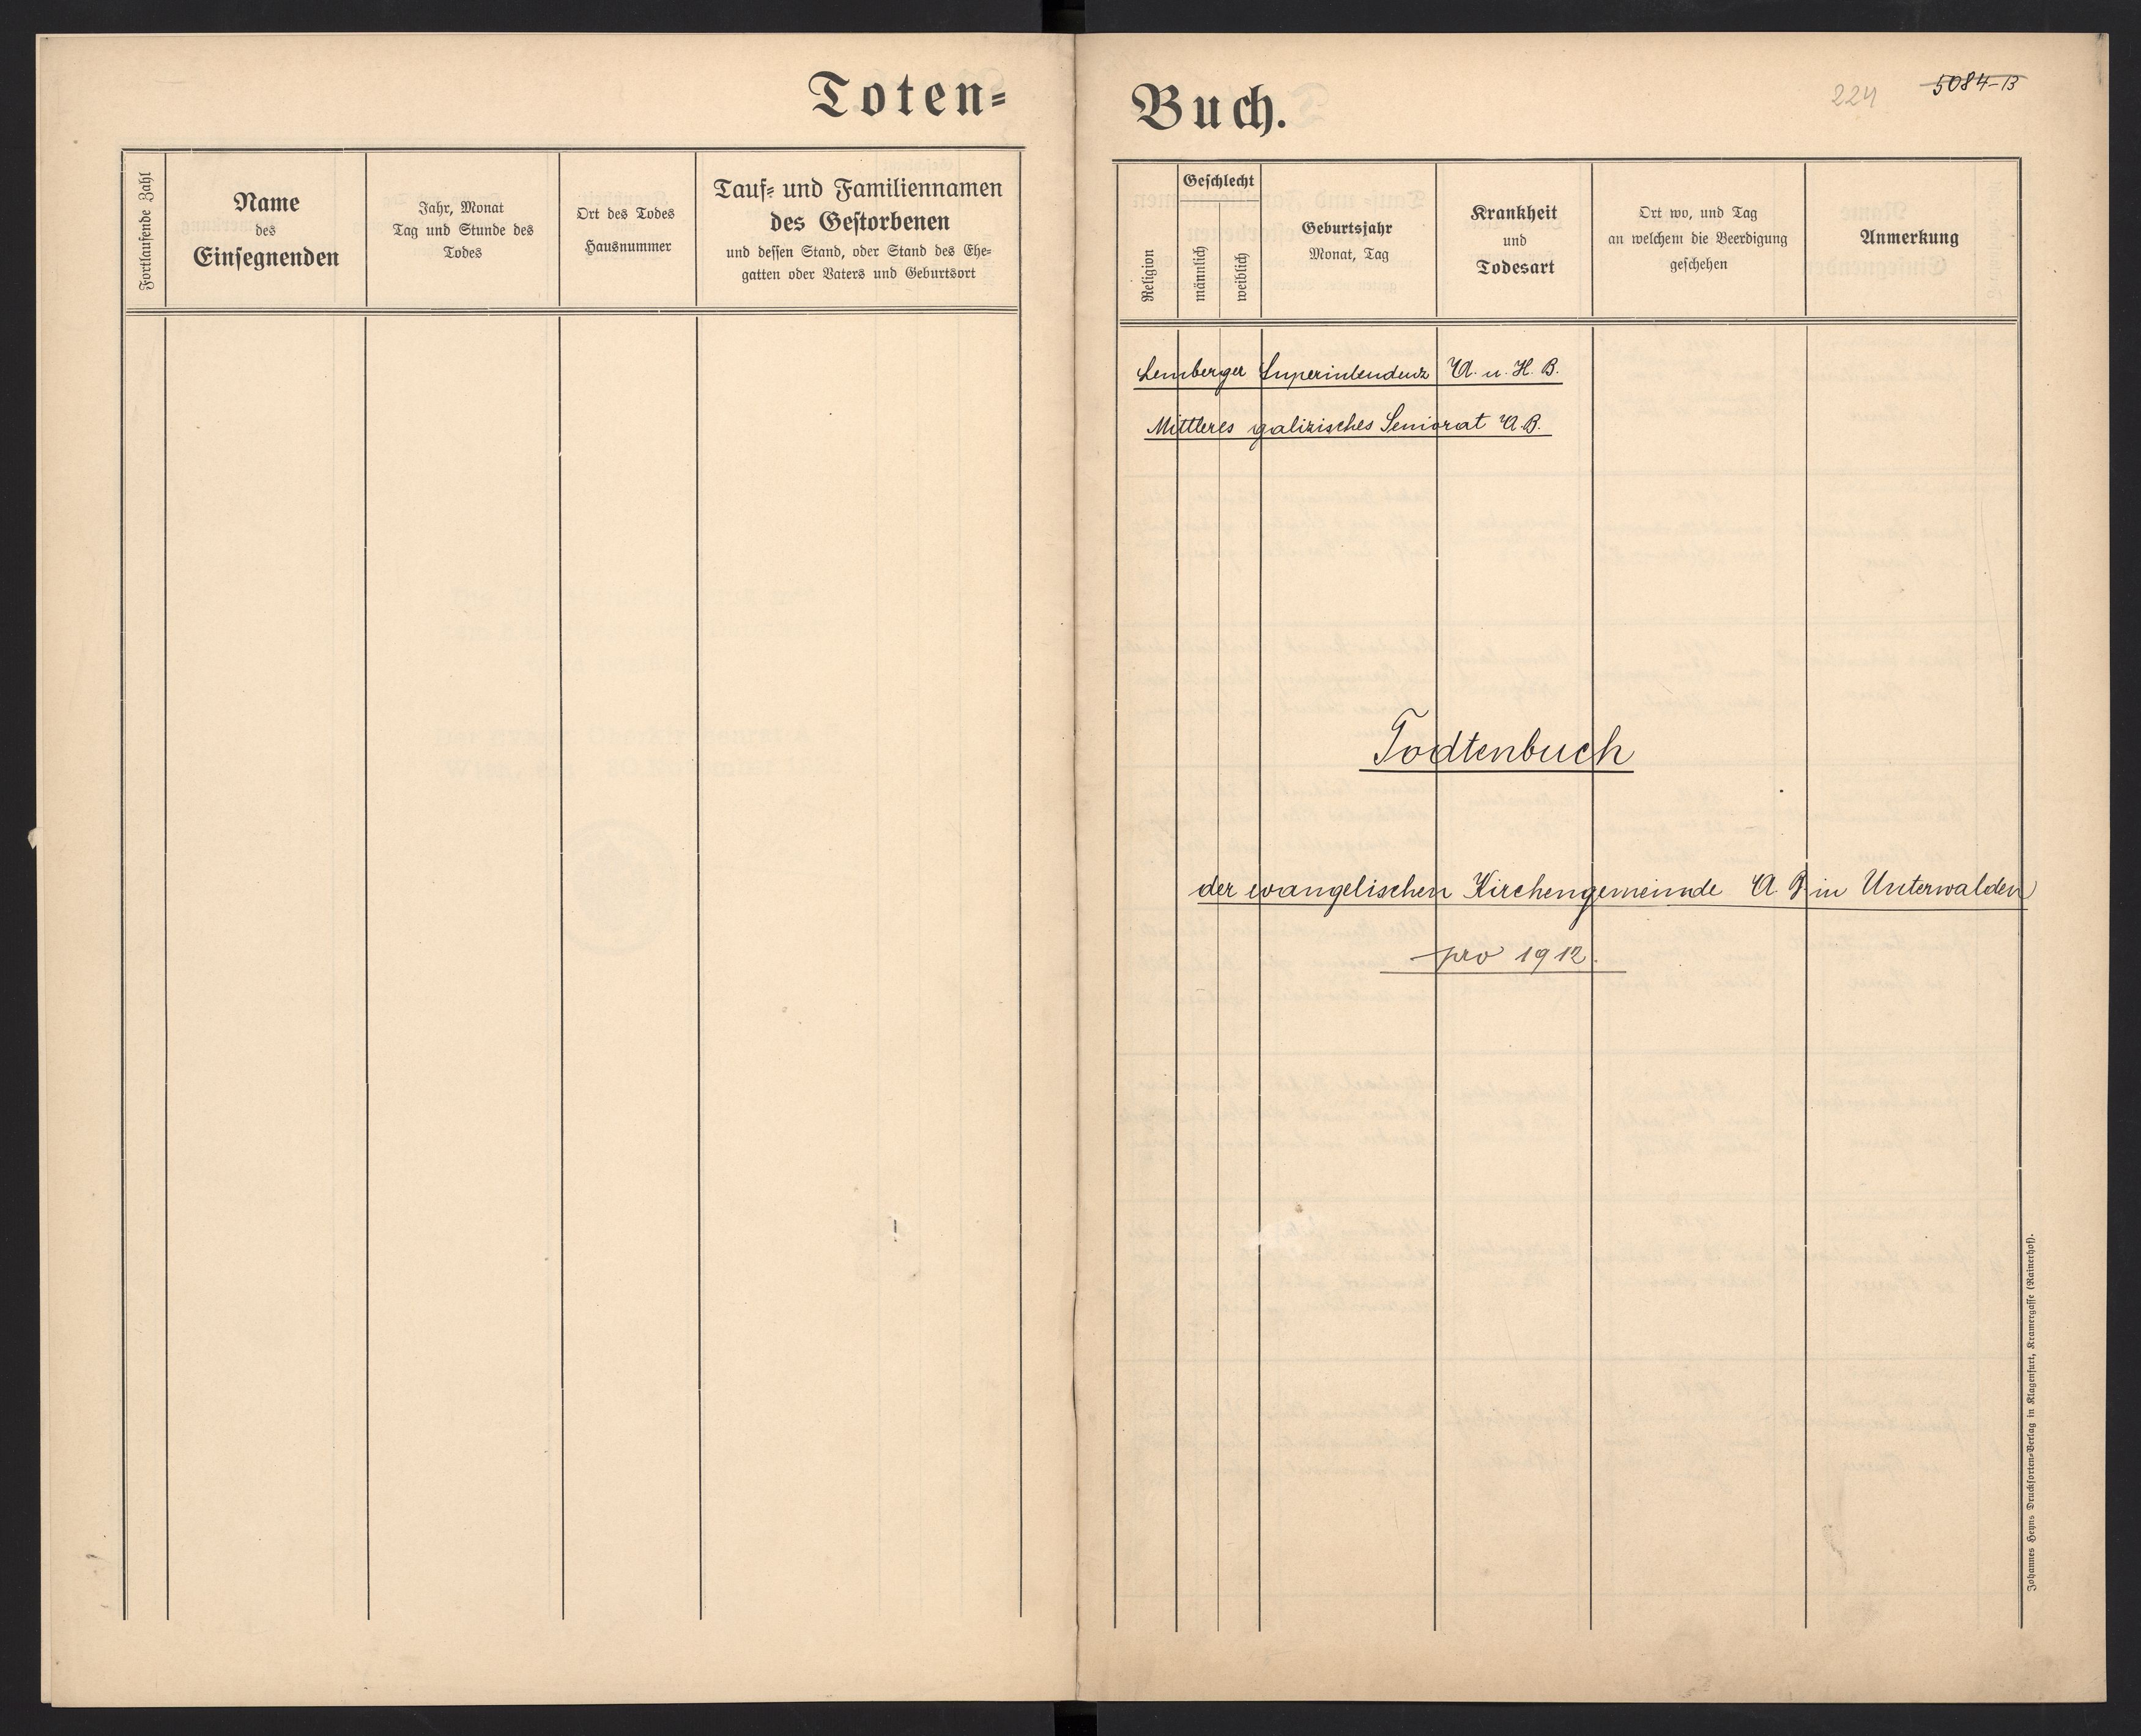 Toten-
Fortlaufende Zahl
Name
des
Einsegnenden
Jahr, Monat
Tag und Stunde des
Todes
Ort des Todes
Hausnummer
Tauf- und Familiennamen
des Gestorbenen
und dessen Stand, oder Stand des Ehe-
gatten oder Vaters und Geburtsort
Buch.
224
5084-B
Religion
Geschlecht
männlich
weiblich
Geburtsjahr
Monat, Tag
Krankheit
und
Todesart
Ort wo, und Tag
an welchem die Beerdigung
geschehen
Anmerkung
Lemberger Superintendenz A. u. H. B.
Mittleres galizisches Seniorat A.B.
Todtenbuch
der evangelischen Kirchengemeinde A. B in Unterwalden
pro 1912.
Johannes Heyns Drucksorten-Verlag in Klagenfurt, Kramergasse (Rainerhof).